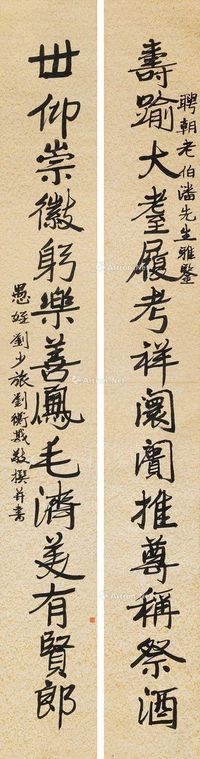 聘朝老伯潘先生雅鑒
壽踰大耋履考祥闤闠推尊稱祭酒
世仰崇徽躬樂善鳳毛濟美有賢郎
愚姪劉少旅劉衡戡敬撰并書